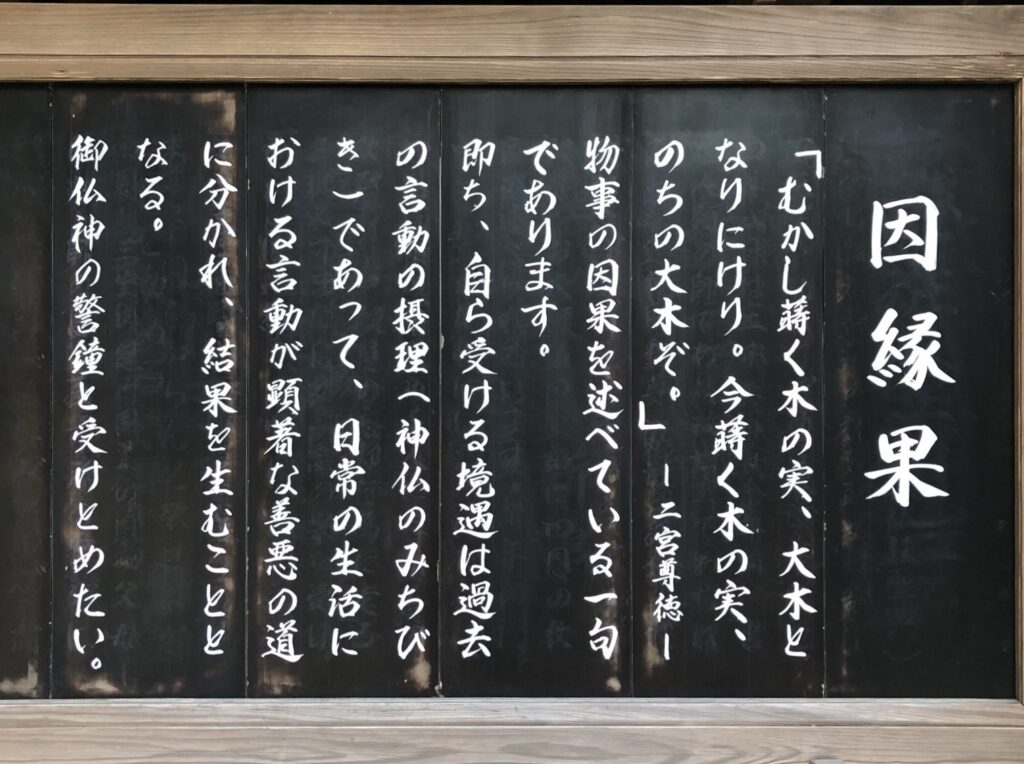 因縁果
「むかし蒔く木の実、大木と
なりにけり。今蒔く木の実、
のちの大木ぞ。」ー二宮尊徳ー
物事の因果を述べている一句
であります。
即ち、自ら受ける境遇は過去
の言動の摂理(神仏のみちび
き)であって、日常の生活に
おける言動が顕著な善悪の道
に分かれ、結果を生むことと
なる。
御仏神の警鐘と受けとめたい。